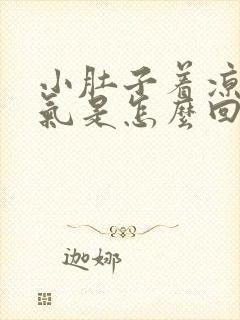 小肚子着凉
氣是怎麼回
迦娜